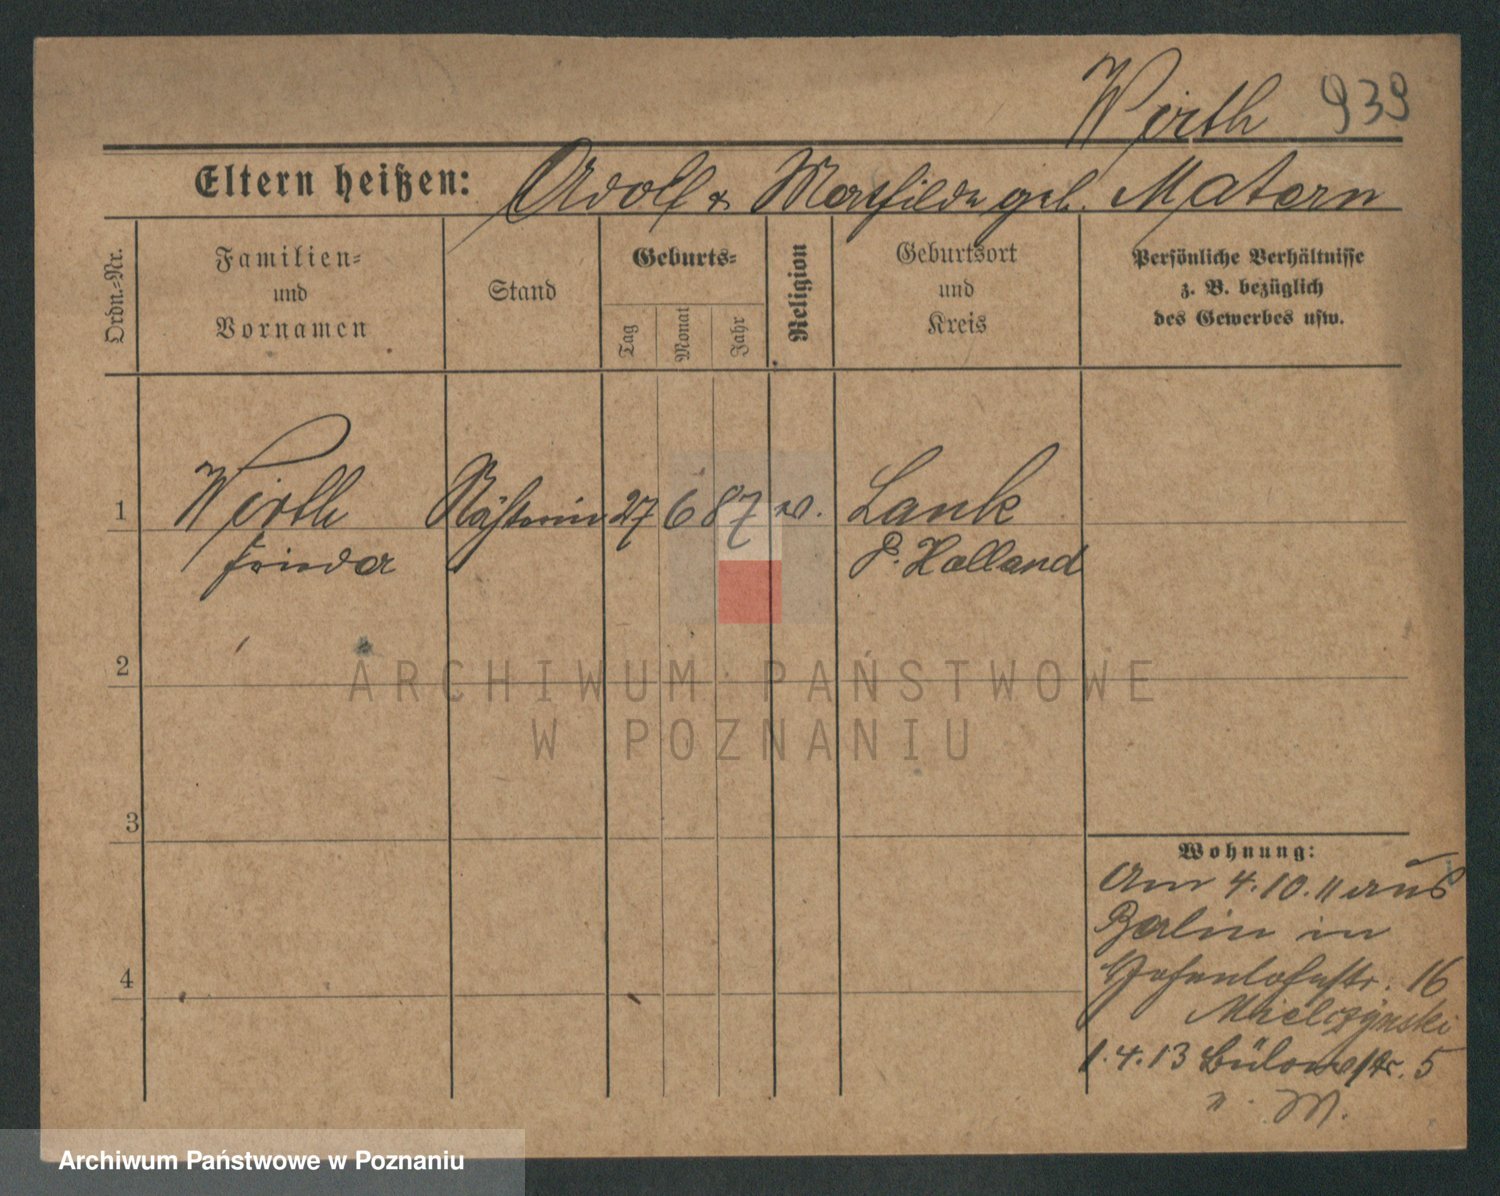 Wirth 939
Eltern heißen: Adolf & Mathilde geb. Matern
Ordn.-Nr.
Familien- und Vornamen
Stand
Geburts-
Tag
Monat
Jahr
Religion
Geburtsort und Kreis
Persönliche Verhältnisse
z. B. bezüglich
des Gewerbes usw.
1
Wirth
Frieda
27 6 87
Lank
P. Holland
2
3
4
ARCHIWUM PAŃSTWOWE
W POZNANIU
Wohnung:
Am 4.10.11 aus
Berlin in
Hohenlohestr. 16
Mielczynski
1.4.13 Bülowstr. 5
M.
Archiwum Państwowe w Poznaniu